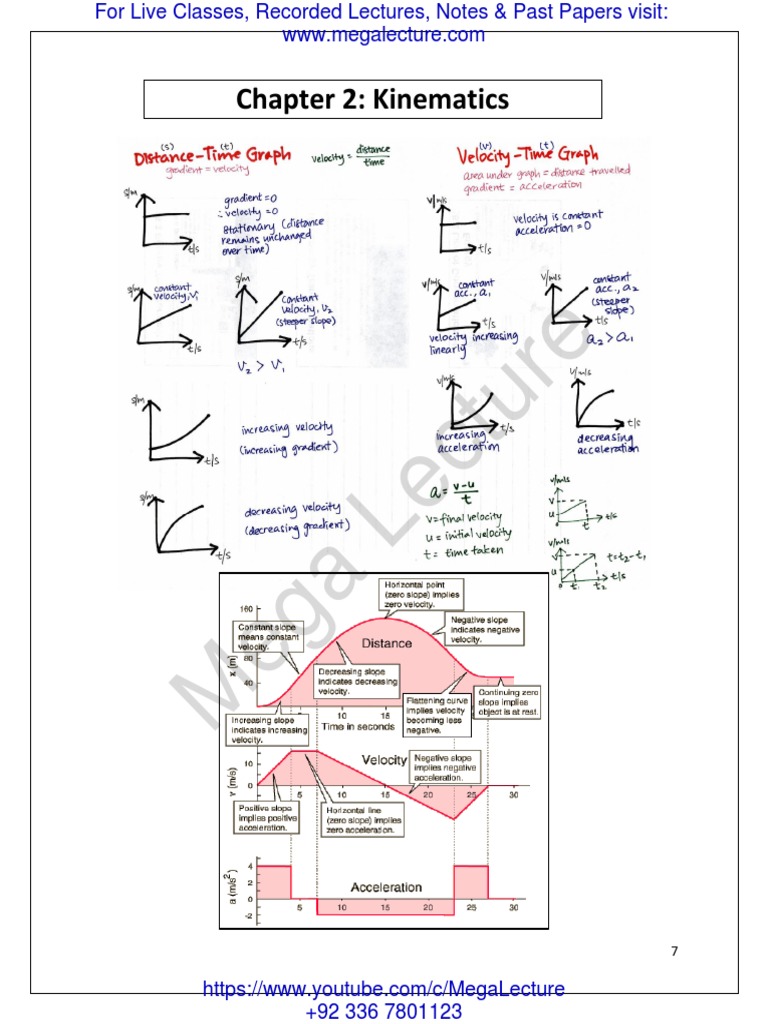 For Live Classes, Recorded Lectures, Notes & Past Papers visit:
www.megalecture.com
Chapter 2: Kinematics
(s) (t)
Distance-Time Graph
gradient = velocity
velocity = distance
time
s/m
t/s
gradient=0
∴ velocity =0
stationary (distance
remains unchanged
over time)
s/m
constant
velocity, v₁
t/s
s/m
constant
velocity, v₂
(steeper slope)
t/s
v₂ > v₁
s/m
t/s
increasing velocity
(increasing gradient)
s/m
t/s
decreasing velocity
(decreasing gradient)
(v) (t)
Velocity-Time Graph
area under graph = distance travelled
gradient = acceleration
v/m/s
t/s
velocity is constant
acceleration =0
v/m/s
constant
acc., a₁
t/s
velocity increasing
linearly
v/m/s
constant
acc., a₂
(steeper
slope)
t/s
a₂ > a₁
v/m/s
t/s
increasing
acceleration
v/m/s
t/s
decreasing
acceleration
a = v-u
t
v= final velocity
u = initial velocity
t = time taken
v/m/s
v
u
t
t/s
v/m/s
v
u
t=t₂-t₁
t/s
0 t₁ t₂
Mega Lecture
Horizontal point
(zero slope) implies
zero velocity.
Constant slope
means constant
velocity.
Negative slope
indicates negative
velocity.
Distance
Decreasing slope
indicates decreasing
velocity.
Flattening curve
implies velocity
becoming less
negative.
Continuing zero
slope implies
object is at rest.
Increasing slope
indicates increasing
velocity.
160
80
40
x (m)
10 15 20 25 30
Time in seconds
Velocity
Negative slope
implies negative
acceleration.
10
0
v (m/s)
5 10 15 20 25 30
Positive slope
implies positive
acceleration.
Horizontal line
(zero slope) implies
zero acceleration.
Acceleration
4
2
0
-2
a (m/s²)
5 10 15 20 25 30
7
https://www.youtube.com/c/MegaLecture
+92 336 7801123